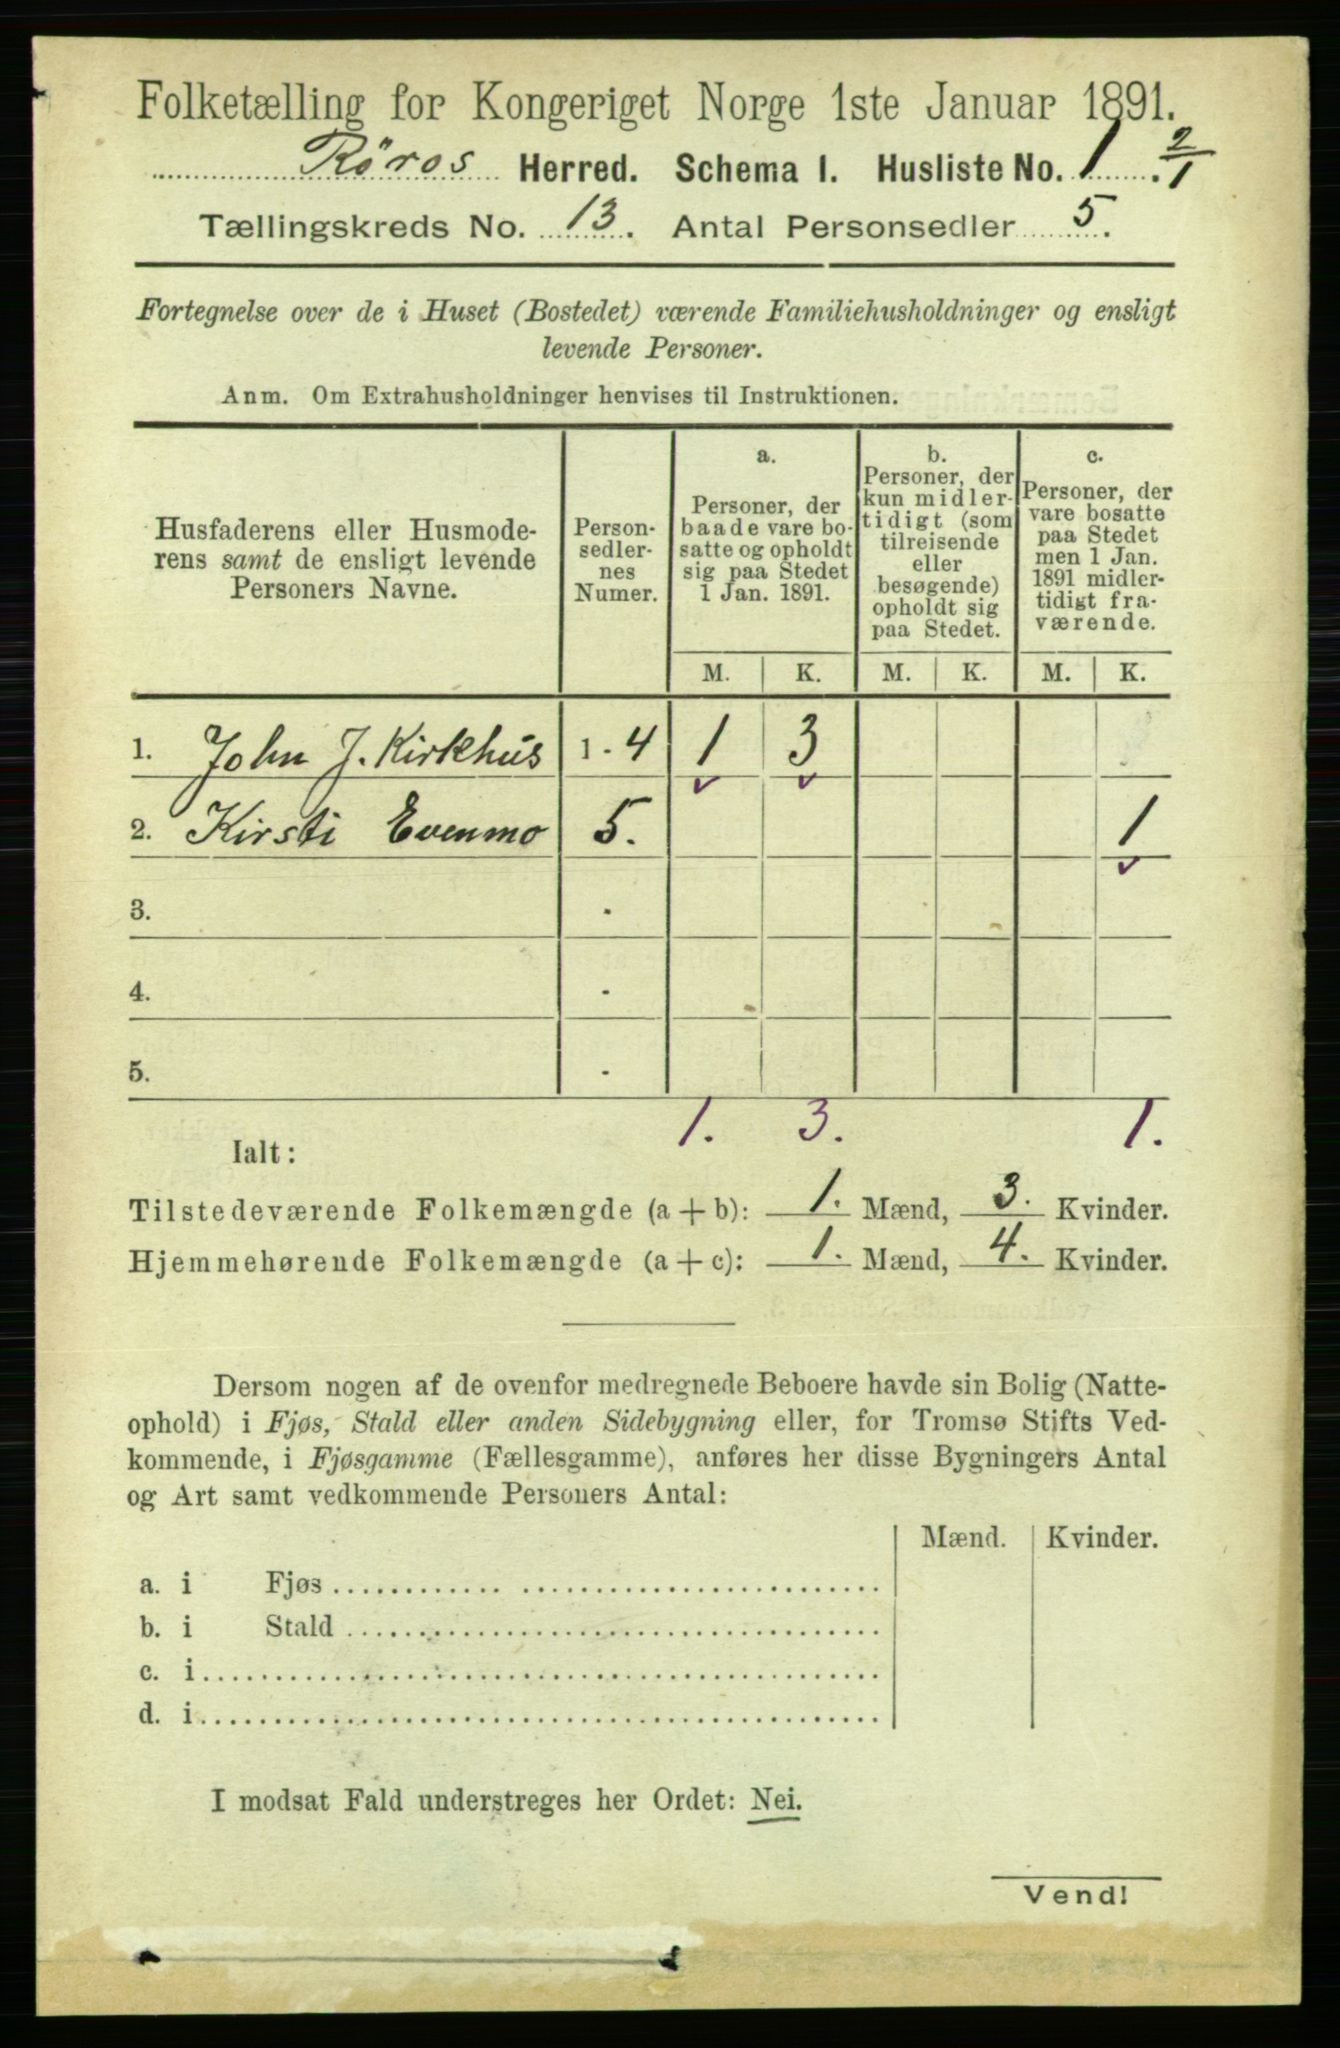 Folketælling for Kongeriget Norge 1ste Januar 1891.
Röros Herred. Schema 1. Husliste No. 1. 2/1
Tællingskreds No. 13. Antal Personsedler 5.
Fortegnelse over de i Huset (Bostedet) værende Familiehusholdninger og ensligt
levende Personer.
Anm. Om Extrahusholdninger henvises til Instruktionen.
Husfaderens eller Husmode-
rens samt de ensligt levende
Personers Navne.
Person-
sedler-
nes
Numer.
a.
Personer, der
baade vare bo-
satte og opholdt
sig paa Stedet
1 Jan. 1891.
b.
Personer, der
kun midler-
tidigt (som
tilreisende
eller
besøgende)
opholdt sig
paa Stedet.
c.
Personer, der
vare bosatte
paa Stedet
men 1 Jan.
1891 midler-
tidigt fra-
værende.
M. K. M. K. M. K.
1. John J. Kirkhus 1 - 4 1 3
2. Kirsti Evenmo 5. 1
3. -
4. -
5. -
1. 3. 1.
Ialt:
Tilstedeværende Folkemængde (a + b): 1. Mænd, 3. Kvinder.
Hjemmehørende Folkemængde (a + c): 1. Mænd, 4. Kvinder.
Dersom nogen af de ovenfor medregnede Beboere havde sin Bolig (Natte-
ophold) i Fjøs, Stald eller anden Sidebygning eller, for Tromsø Stifts Ved-
kommende, i Fjøsgamme (Fællesgamme), anføres her disse Bygningers Antal
og Art samt vedkommende Personers Antal:
Mænd. Kvinder.
a. i Fjøs
b. i Stald
c. i
d. i
I modsat Fald understreges her Ordet: Nei.
Vend!